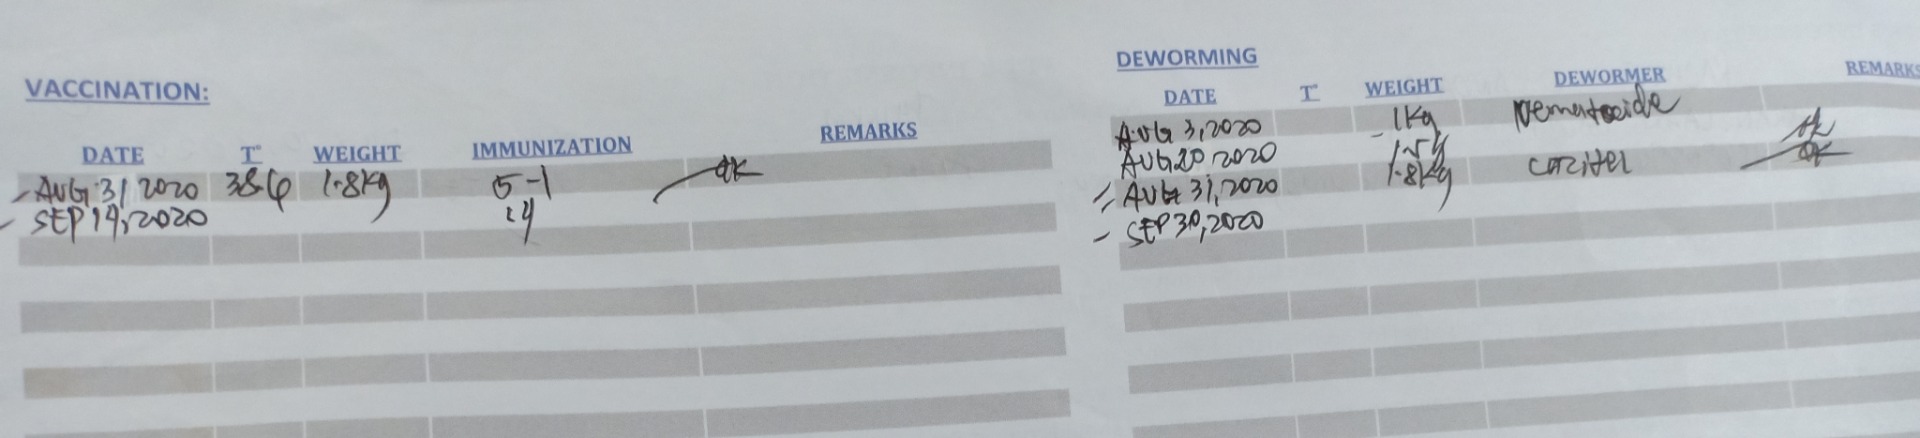 VACCINATION:
DATE T° WEIGHT IMMUNIZATION REMARKS
AUG 31 2020 38.6 1.8kg 5-1
SEP 14, 2020
DEWORMING
DATE T° WEIGHT DEWORMER REMARKS
AUG 3, 2020 1kg Nematocide
AUG 20 2020
AUG 31, 2020 1.8kg
SEP 30, 2020